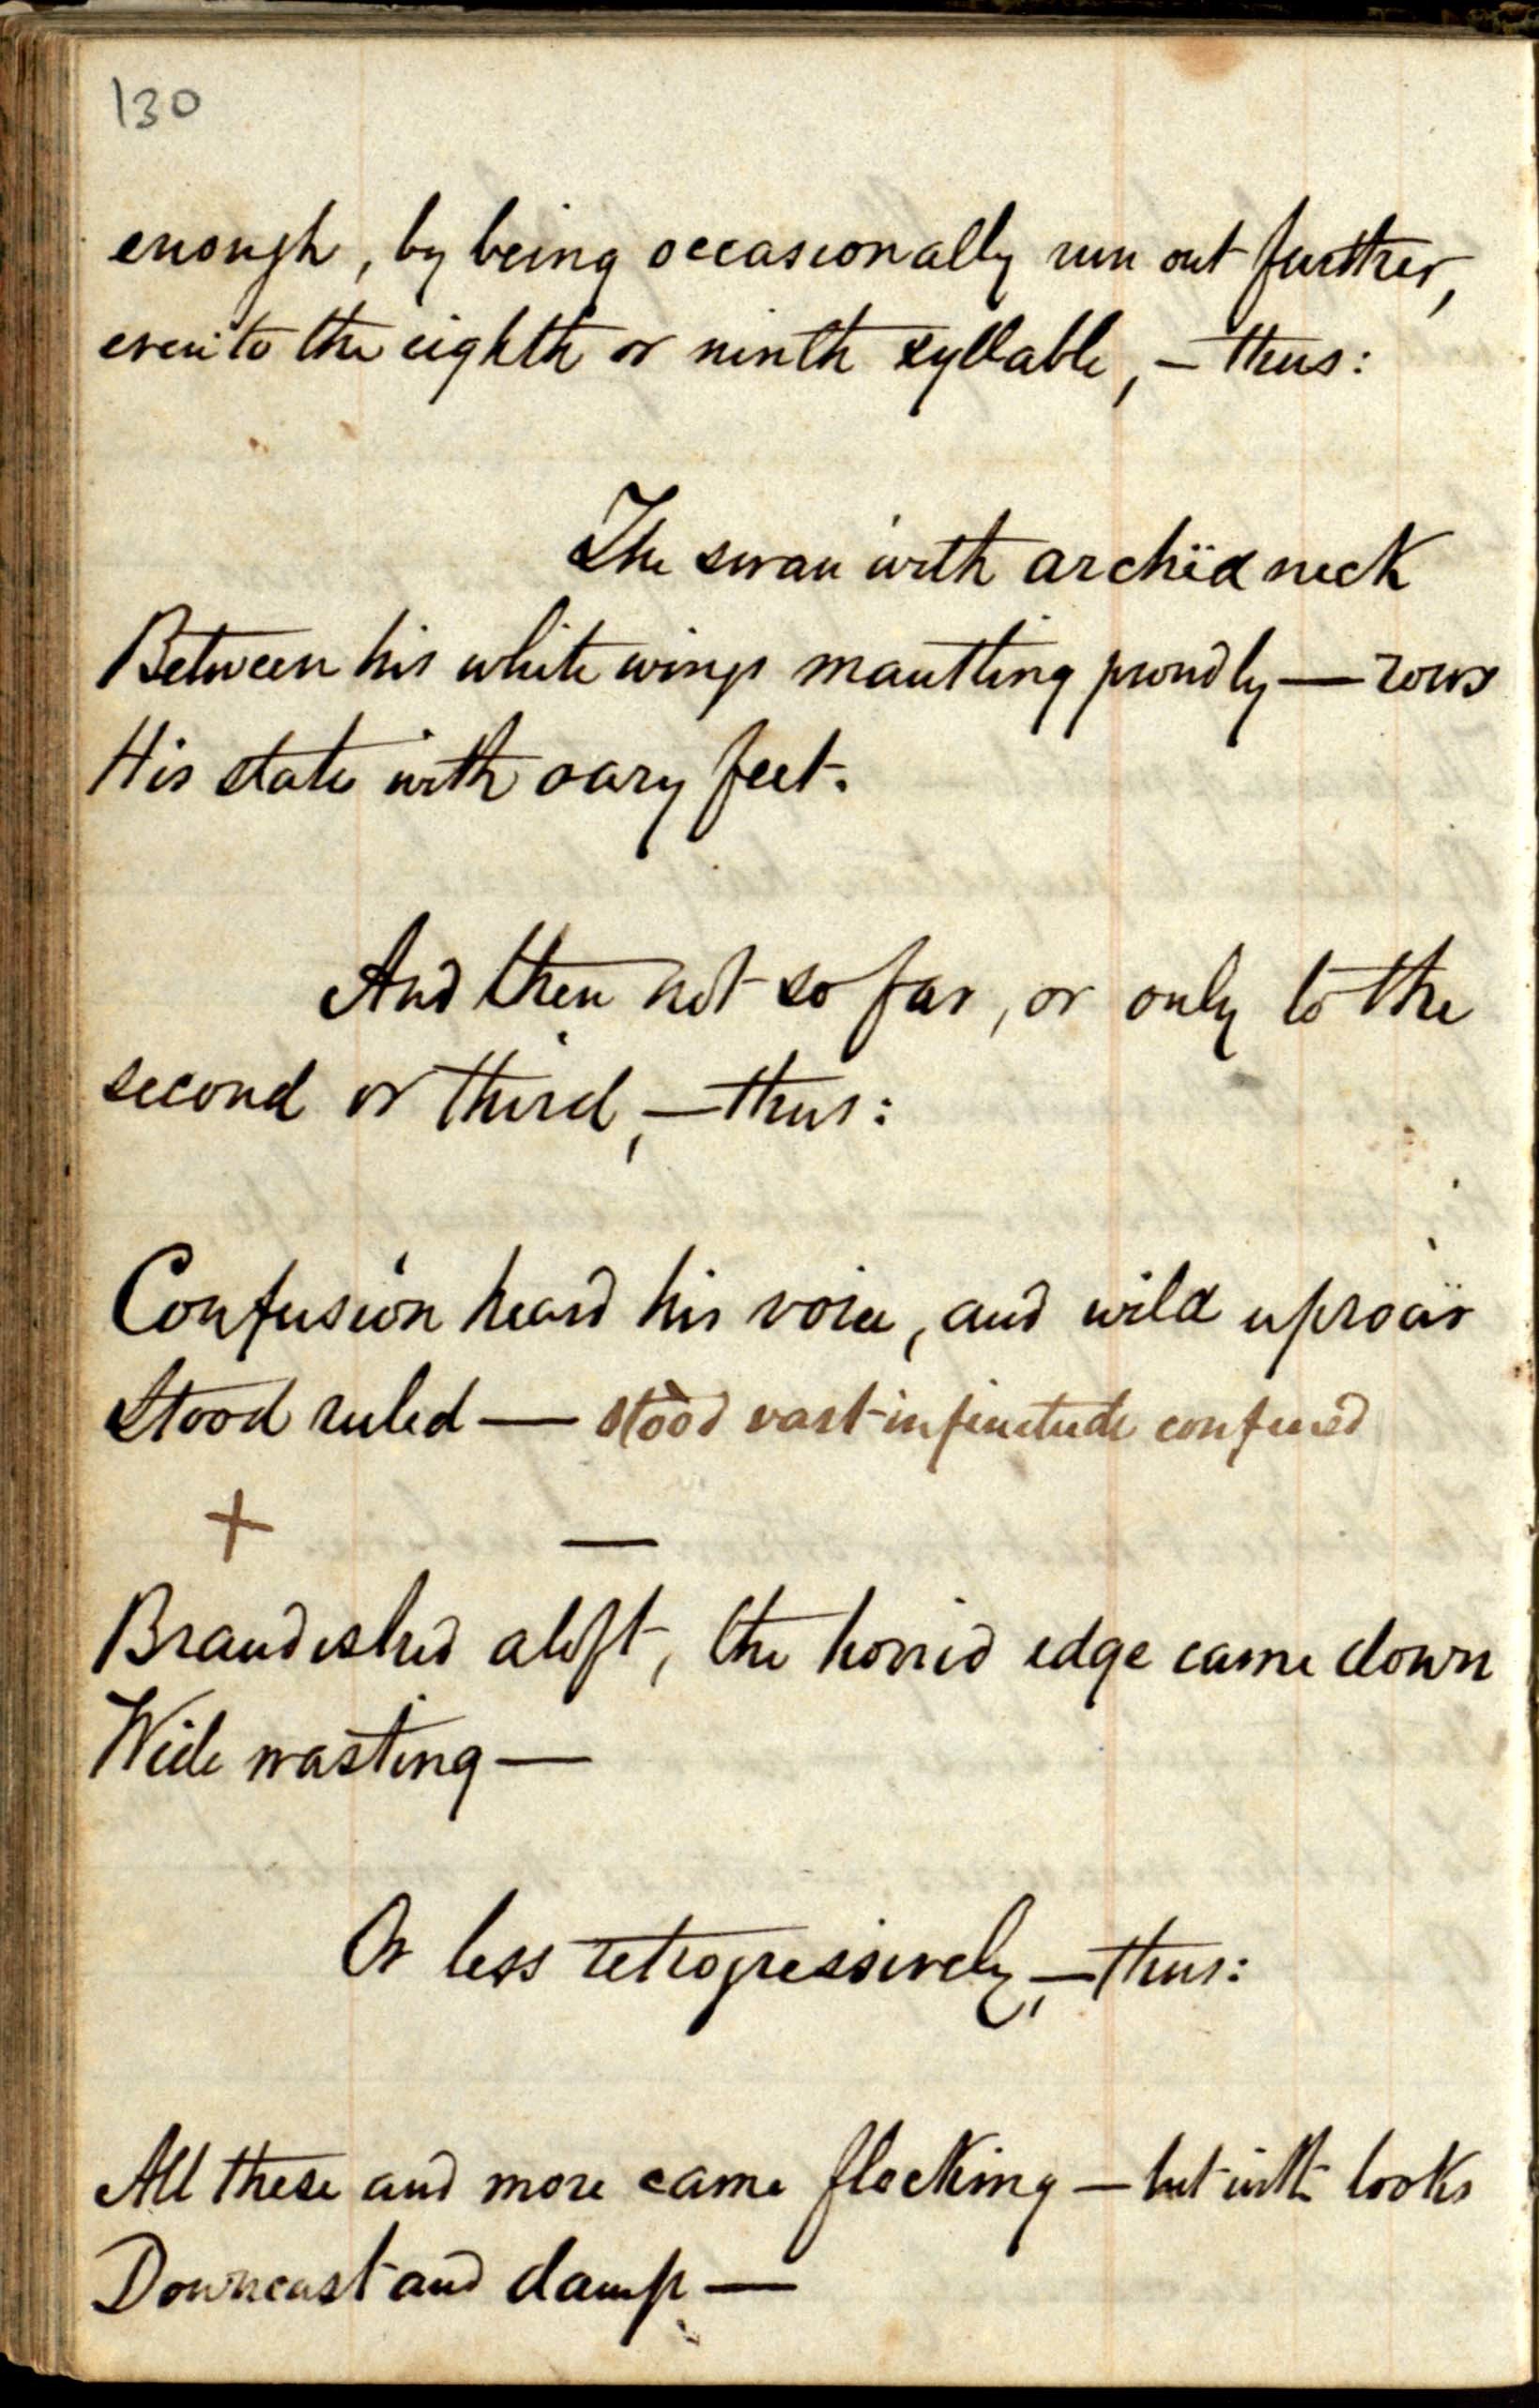 130
enough, by being occasionally run out further,
even to the eighth or ninth syllable, — thus:
The swan with archëd neck
Between his white wings mantling proudly — rows
His state with oary feet.
And then not so far, or only to the
second or third, — thus:
Confusion heard his voice, and wild uproar
Stood ruled — stood vast infinitude confused
+
—
Brandished aloft, the horrid edge came down
Wide wasting —
Or less retrogressively, — thus:
All these and more came flocking — but with looks
Downcast and damp —